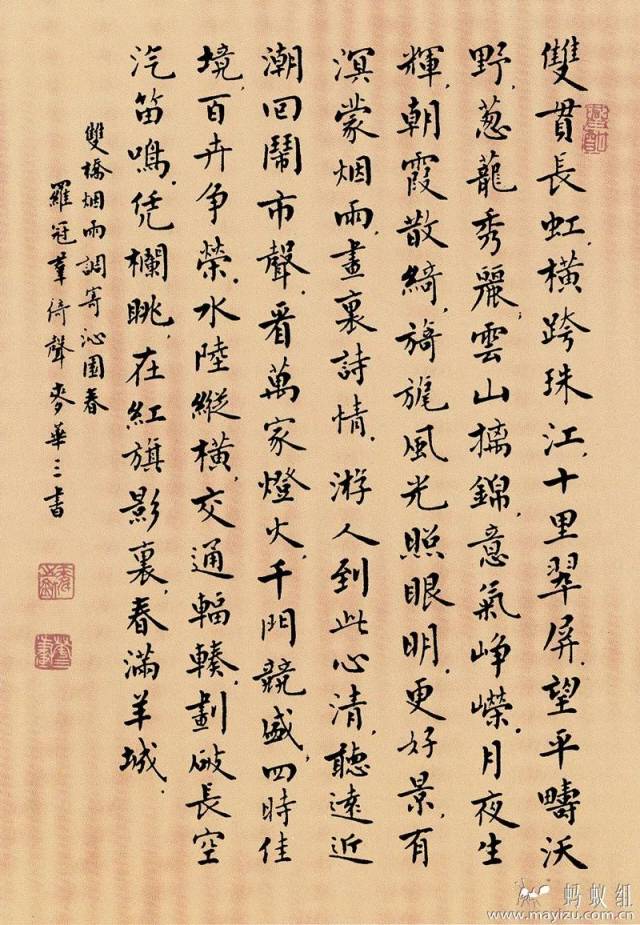 雙貫長虹，橫跨珠江，十里翠屏。望平疇沃
野，葱蘢秀麗，雲山摛錦，意氣崢嶸。月夜生
輝，朝霞散綺，旖旎風光照眼明。更好景，有
溟蒙烟雨，畫裏詩情。游人到此心清，聽遠近
潮回鬧市聲。看萬家燈火，千門競盛，四時佳
境，百卉争榮。水陸縱橫，交通輻輳，劃破長空
汽笛鳴。凭欄眺，在紅旗影裏，春滿羊城。
雙橋烟雨調寄沁園春
羅冠羣倚聲麥華三書
蚂蚁组
www.mayizu.com.cn